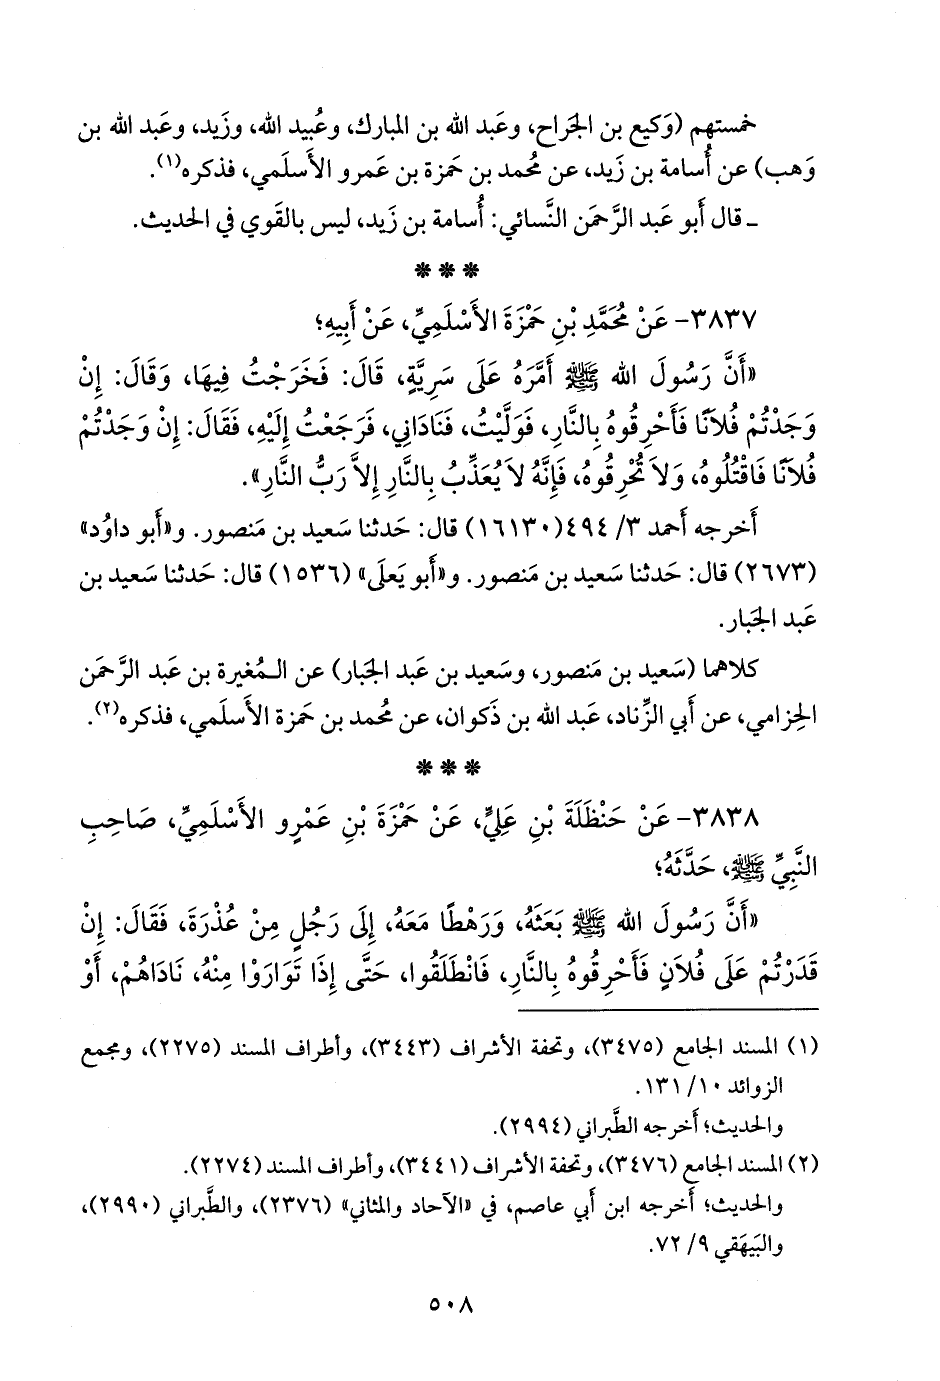 خمستهم (وَكيع بن الجَراح، وعَبد الله بن المبارك، وعُبيد الله، وزَيد، وعَبد الله بن
وَهب) عن أُسامة بن زَيد، عن محُمد بن حَمزة بن عَمرو الأَسلَمي، فذكره(١).
ـ قال أَبو عَبد الرَّحمَن النَّسائي: أُسامة بن زَيد، ليس بالقَوي في الحَديث.
* * *
٣٨٣٧- عَنْ مُحَمَّدِ بْنِ حَمْزَةَ الأَسْلَمِيِّ، عَنْ أَبِيهِ؛
«أَنَّ رَسُولَ الله ﷺ أَمَّرَهُ عَلَى سَرِيَّةٍ، قَالَ: فَخَرَجْتُ فِيهَا، وَقَالَ: إِنْ
وَجَدْتُمْ فُلاَنًا فَأَحْرِقُوهُ بِالنَّارِ، فَوَلَّيْتُ، فَنَادَانِي، فَرَجَعْتُ إِلَيْهِ، فَقَالَ: إِنْ وَجَدْتُمْ
فُلاَنًا فَاقْتُلُوهُ، وَلاَ تُحْرِقُوهُ، فَإِنَّهُ لاَ يُعَذِّبُ بِالنَّارِ إِلاَّ رَبُّ النَّارِ».
أَخرجه أَحمد ٣/ ٤٩٤(١٦١٣٠) قال: حَدثنا سَعيد بن مَنصور. و«أَبو داوُد»
(٢٦٧٣) قال: حَدثنا سَعيد بن مَنصور. و«أَبو يَعلَى» (١٥٣٦) قال: حَدثنا سَعيد بن
عَبد الجَبار.
كلاهما (سَعيد بن مَنصور، وسَعيد بن عَبد الجَبار) عن المُغيرة بن عَبد الرَّحمَن
الحِزامي، عن أَبي الزِّناد، عَبد الله بن ذَكوان، عن محُمد بن حَمزة الأَسلَمي، فذكره(٢).
* * *
٣٨٣٨- عَنْ حَنْظَلَةَ بْنِ عَلِيٍّ، عَنْ حَمْزَةَ بْنِ عَمْرٍو الأَسْلَمِيِّ، صَاحِبِ
النَّبِيِّ ﷺ، حَدَّثَهُ؛
«أَنَّ رَسُولَ الله ﷺ بَعَثَهُ، وَرَهْطًا مَعَهُ، إِلَى رَجُلٍ مِنْ عُذْرَةَ، فَقَالَ: إِنْ
قَدَرْتُمْ عَلَى فُلاَنٍ فَأَحْرِقُوهُ بِالنَّارِ، فَانْطَلَقُوا، حَتَّى إِذَا تَوَارَوْا مِنْهُ، نَادَاهُمْ، أَوْ
(١) المسند الجامع (٣٤٧٥)، وتحفة الأشراف (٣٤٤٣)، وأطراف المسند (٢٢٧٥)، ومجمع
الزوائد ١٠/ ١٣١.
والحديث؛ أَخرجه الطَّبراني (٢٩٩٤).
(٢) المسند الجامع (٣٤٧٦)، وتحفة الأشراف (٣٤٤١)، وأطراف المسند (٢٢٧٤).
والحديث؛ أَخرجه ابن أَبي عاصم، في «الآحاد والمثاني» (٢٣٧٦)، والطَّبراني (٢٩٩٠)،
والبَيهَقي ٩/ ٧٢.
٥٠٨